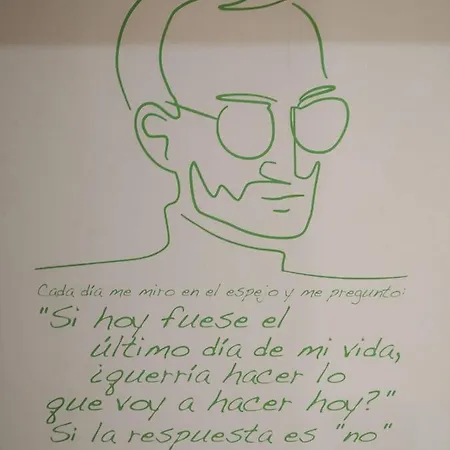 Cada día me miro en el espejo y me pregunto:
"Si hoy fuese el
último día de mi vida,
¿querría hacer lo
que voy a hacer hoy?"
Si la respuesta es "no"